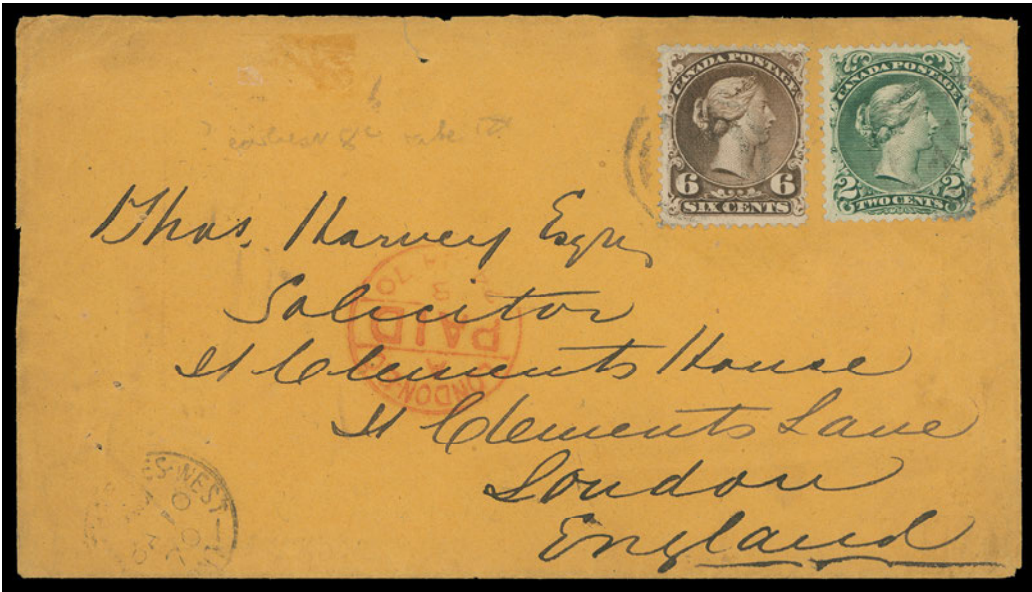 CANADA POSTAGE
6 6
SIX CENTS
CANADA POSTAGE
2 2
TWO CENTS
earliest 8c rate
Thos. Harvey Esqre
Solicitor
St Clements House
St Clements Lane
London
England
LONDON
PAID
8
70
WEST